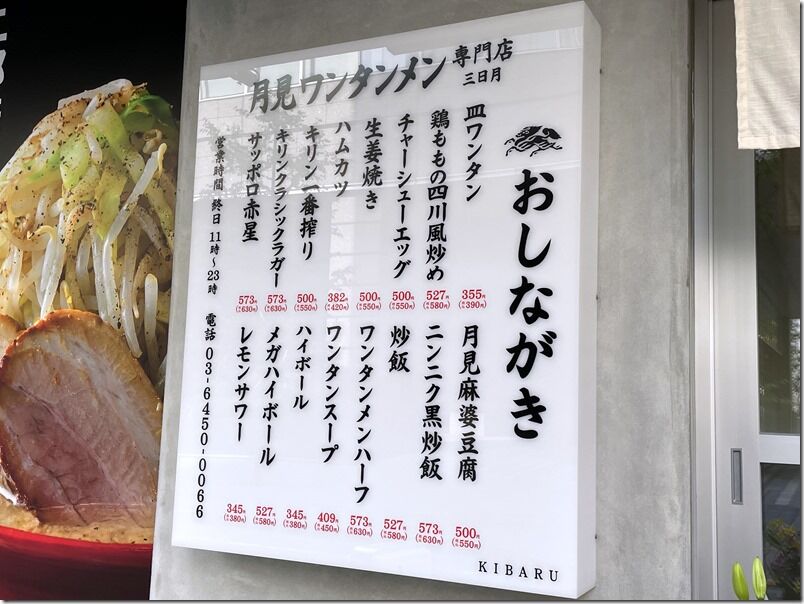 月見ワンタンメン専門店
三日月
おしながき
皿ワンタン 355円
(390円)
鶏ももの四川風炒め 527円
(580円)
チャーシューエッグ 500円
(550円)
生姜焼き 500円
(550円)
ハムカツ 382円
(420円)
キリン一番搾り 500円
(550円)
キリンクラシックラガー 573円
(630円)
サッポロ赤星 573円
(630円)
月見麻婆豆腐 500円
(550円)
ニンニク黒炒飯 573円
(630円)
炒飯 527円
(580円)
ワンタンメンハーフ 573円
(630円)
ワンタンスープ 409円
(450円)
ハイボール 345円
(380円)
メガハイボール 527円
(580円)
レモンサワー 345円
(380円)
営業時間 終日 11時～23時 電話 03-6450-0066
KIBARU